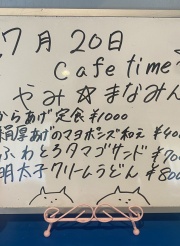 7月20日
Cafe time
やみ☆まなみん
からあげ定食 ¥1000
厚あげのマヨポンズ和え ¥400
ふわとろタマゴサンド ¥700
明太子クリームうどん ¥800